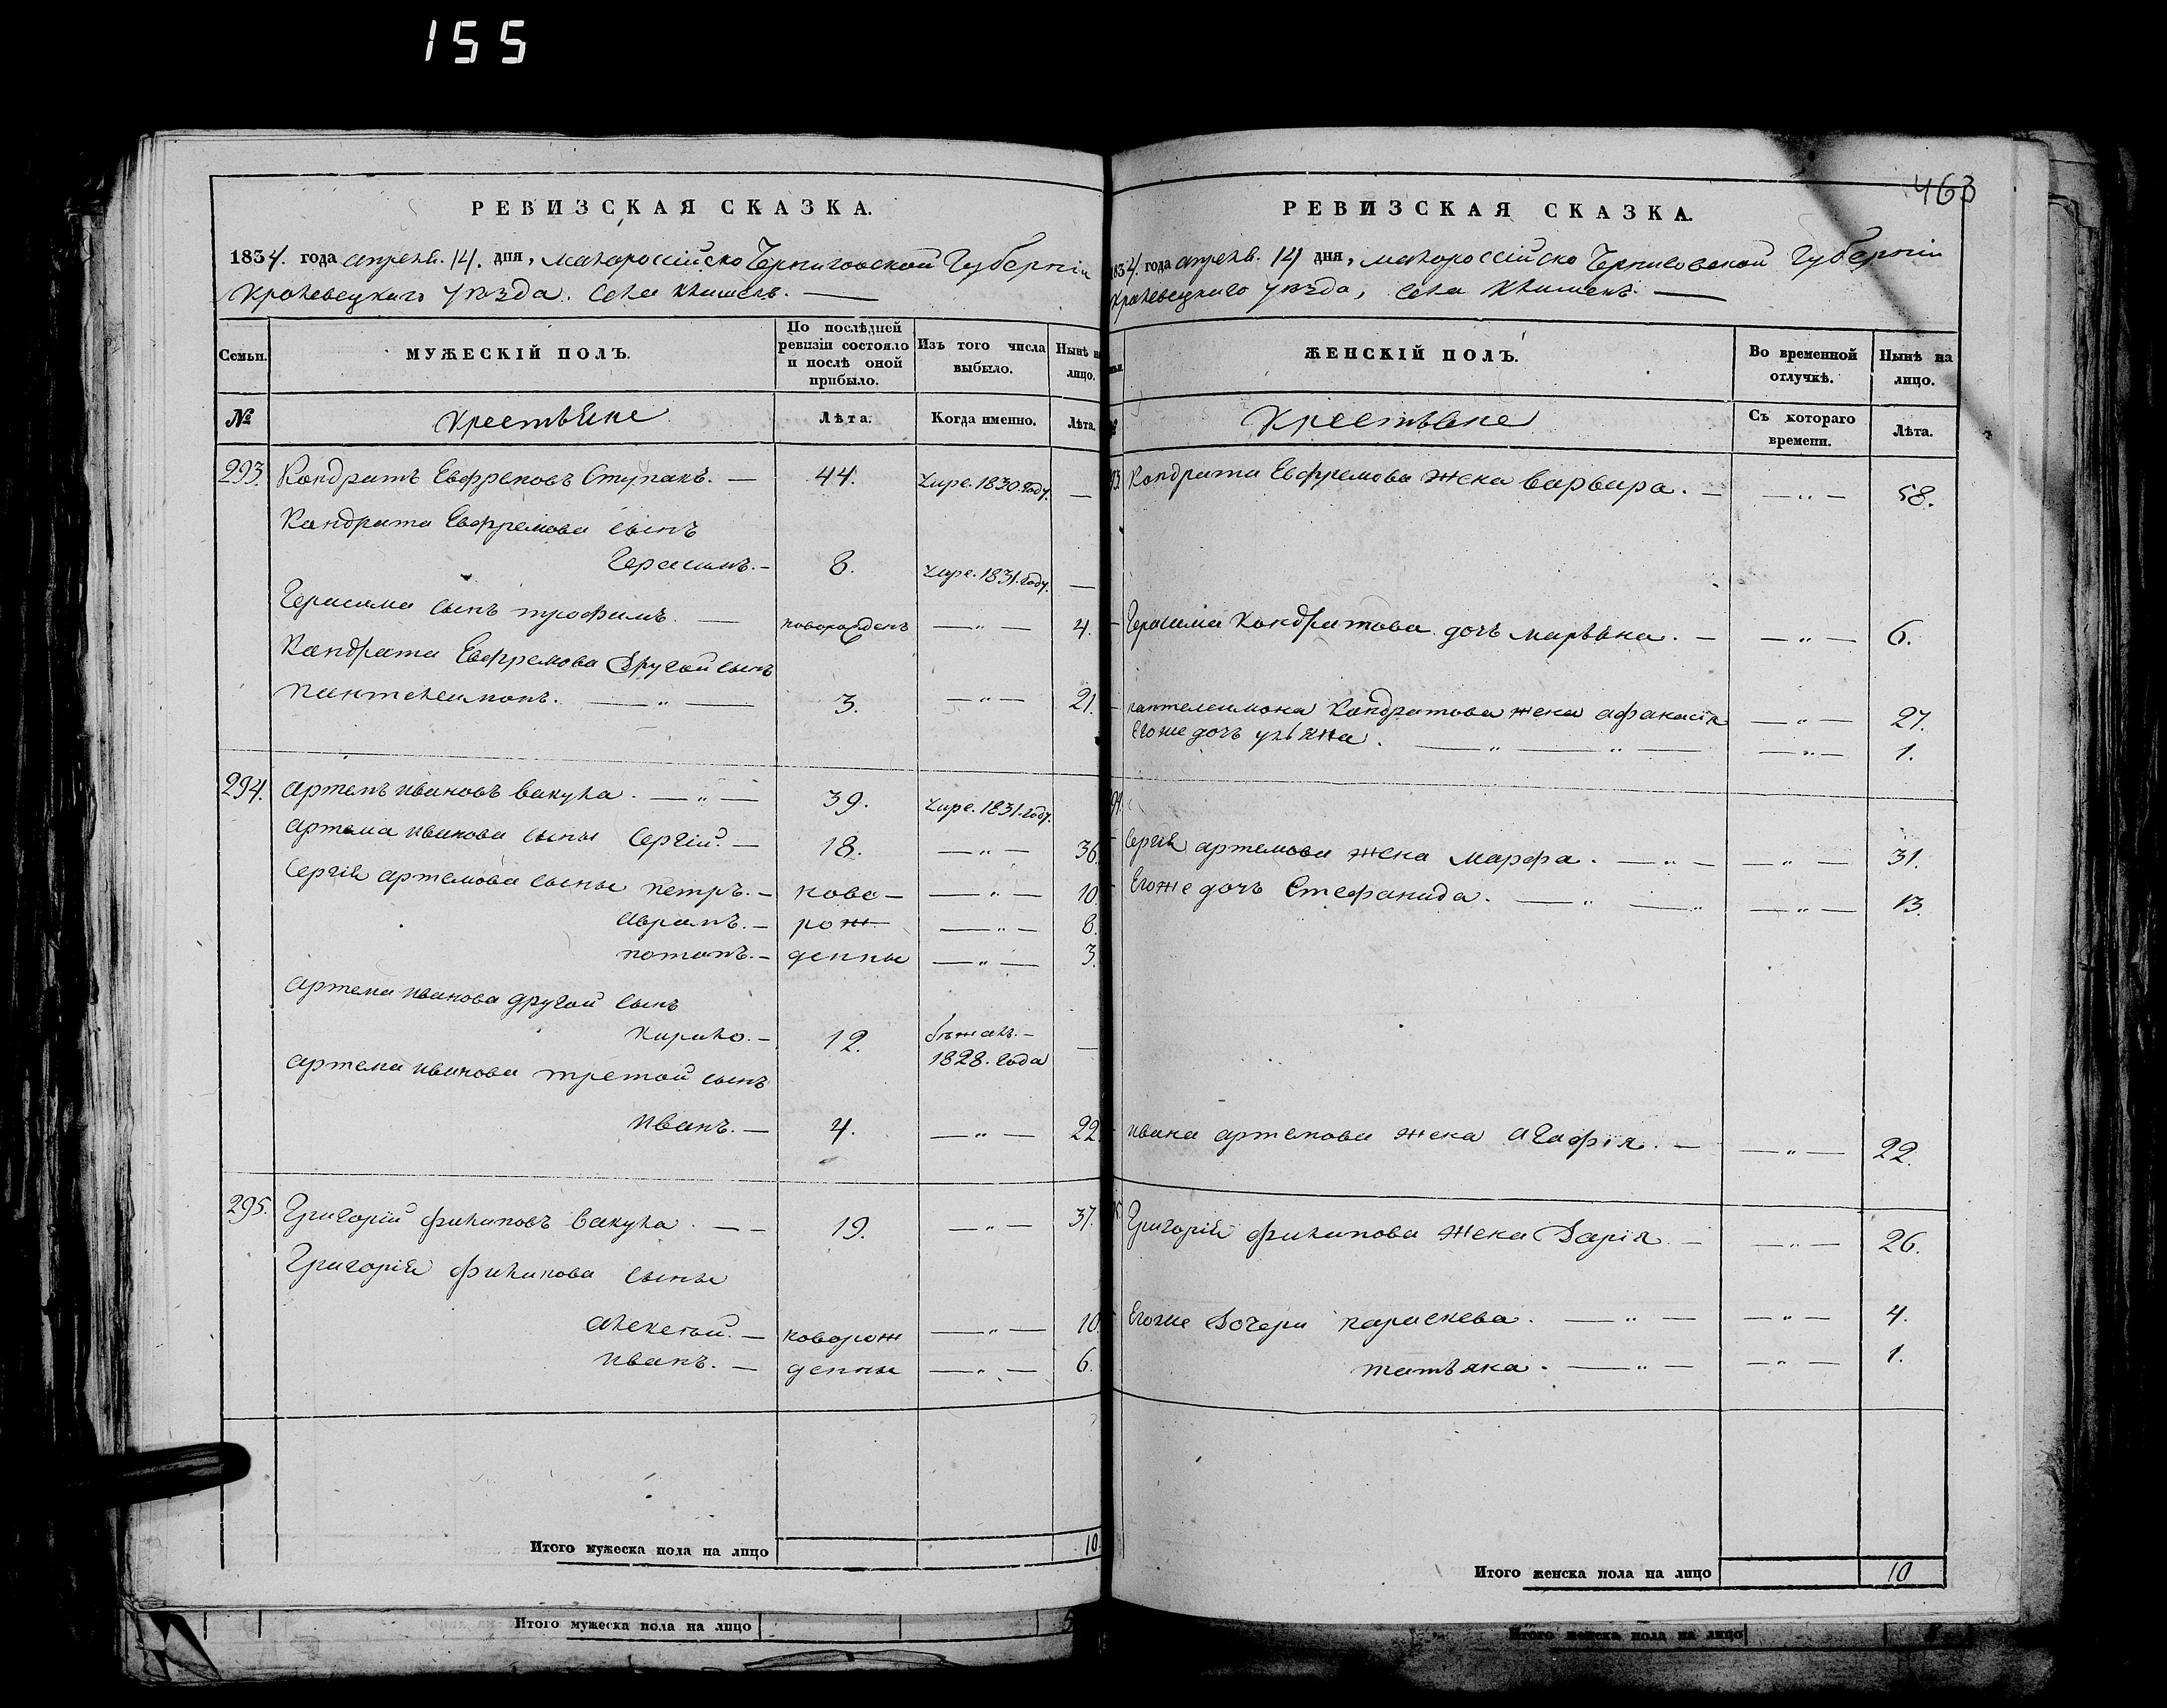 155
РЕВИЗСКАЯ СКАЗКА.
1834. года апреля. 14. дня, малороссійско Черниговской Губерніи
Кролевецкаго уѣзда. Села Клишекъ.
Семьи. МУЖЕСКІЙ ПОЛЪ. По послѣдней ревизіи состояло и послѣ оной прибыло. Изъ того числа выбыло. Нынѣ на лицо.
№ Крестьяне Лѣта. Когда именно. Лѣта.
293. Кондратъ Евфремовъ Ступакъ. — 44. Умре. 1830. году. —
Кондрата Евфремова сынъ
Герасимъ. — 8. Умре. 1831. году. —
Герасима сынъ трофимъ. — новорожденъ — „ — 4.
Кондрата Евфремова другой сынъ
пантелеимонъ. — „ — 3. — „ — 21.
294. Артемъ ивановъ вакула. — „ — 39. Умре. 1831. году.
Артема иванова сыны Сергій. — 18. — „ — 36.
Сергія артемова сыны петръ. — ново — — „ — 10
Аврамъ. — рож — „ — 8.
потапъ. — денны — „ — 3.
Артема иванова другой сынъ
Кирило. — 12. бѣжалъ. — 1828. года —
Артема иванова третой сынъ
Иванъ. — 4. — „ — 22
295. Григорій филиповъ вакула. — — 19. — „ — 37.
Григорія филипова сыны
Алексѣй. — новорож — „ — 10.
иванъ. — денны — „ — 6.
Итого мужеска пола на лицо 10.
Итого мужеска пола на лицо 5
463
РЕВИЗСКАЯ СКАЗКА.
1834. года апреля. 14 дня, малороссійско Черниговской Губерніи
Кролевецкаго уѣзда, села Клишекъ. —
ЖЕНСКІЙ ПОЛЪ. Во временной отлучкѣ. Нынѣ на лицо.
Крестьяне Съ котораго времени. Лѣта.
93. Кондрата Евфремова жена варвара. — — „ — 58.
Герасима Кондратова дочь марьяна. — — „ — 6.
пантелеимона Кондратова жена афанасія — „ — 27.
Его же дочь ульяна. — „ — „ — — „ — 1.
94.
Сергія артемова жена марфа. — „ — — „ — 31.
Его же дочь Стефанида. — „ — „ — „ — 13.
ивана артемова жена Агафія. — — „ — 22.
Григорія филипова жена Дарія. — — „ — 26.
Его же дочери параскева. — „ — — „ — 4.
татьяна. — „ — — „ — 1.
Итого женска пола на лицо 10
Итого женска пола на лицо